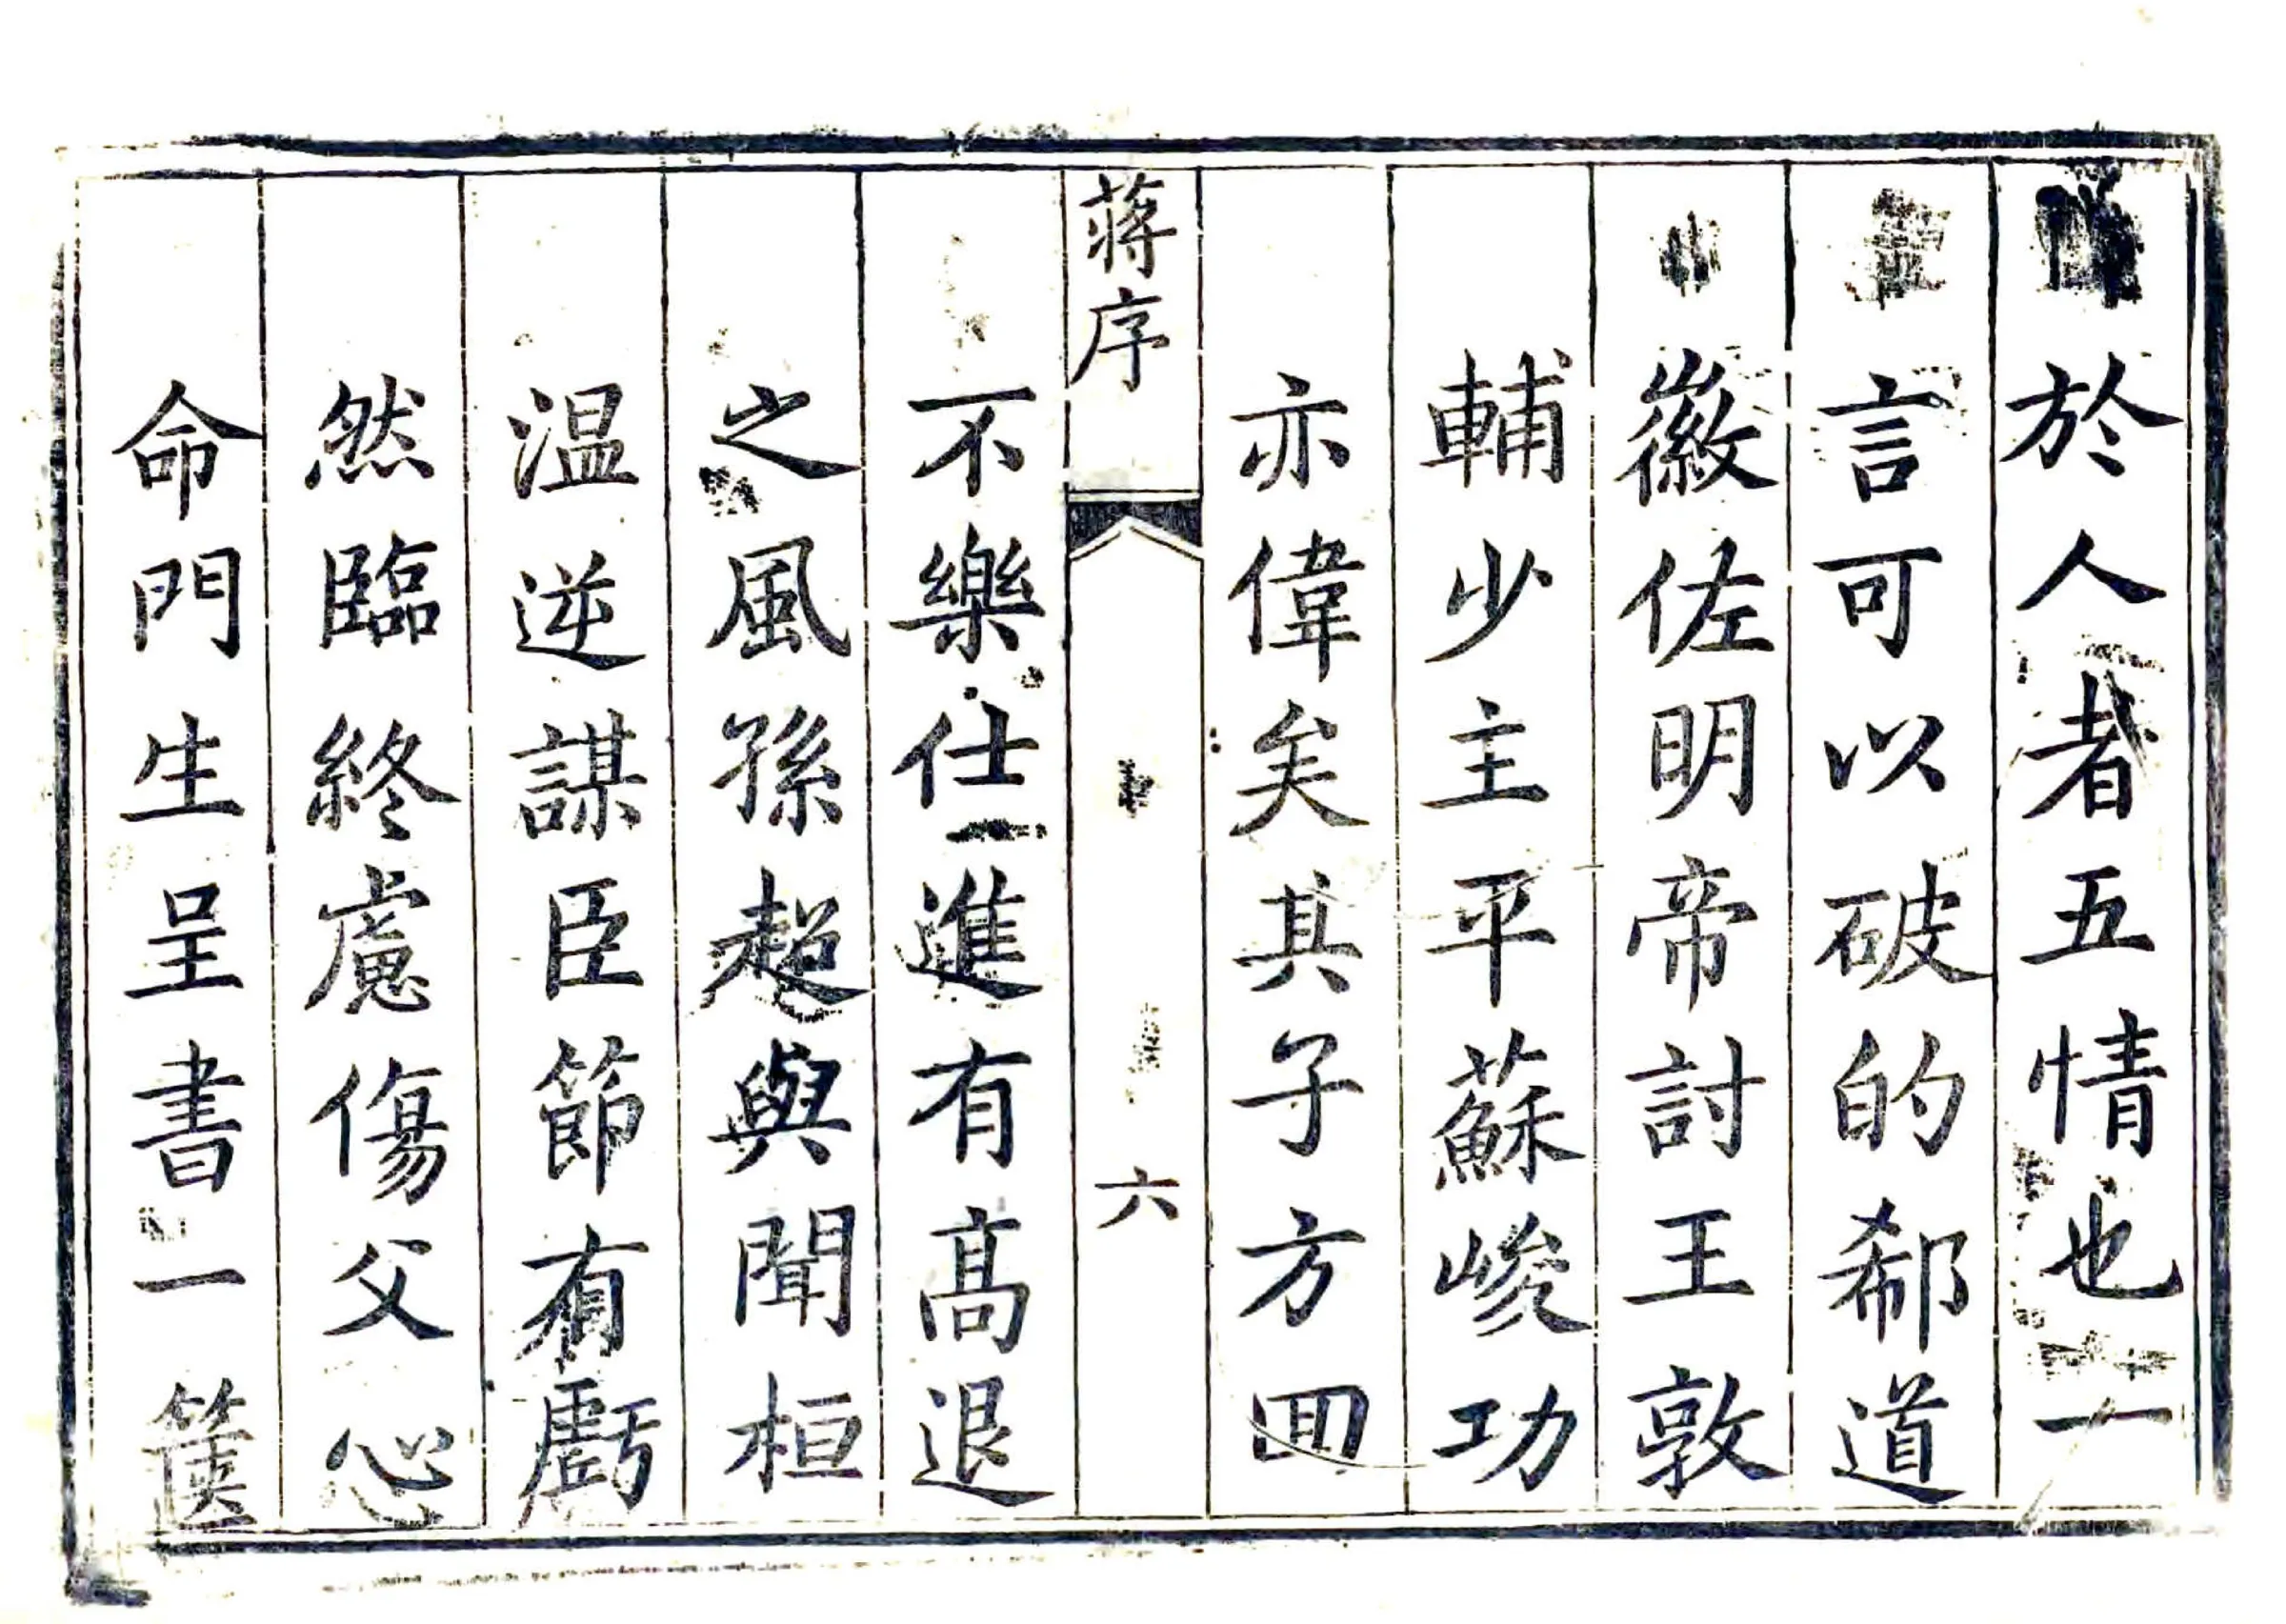 於人者五情也一
言可以破的郗道
徽佐明帝討王敦
輔少主平蘇峻功
亦偉矣其子方回
蔣序
六
不樂仕進有高退
之風孫超與聞桓
温逆謀臣節有虧
然臨終慮傷父心
命門生呈書一篋